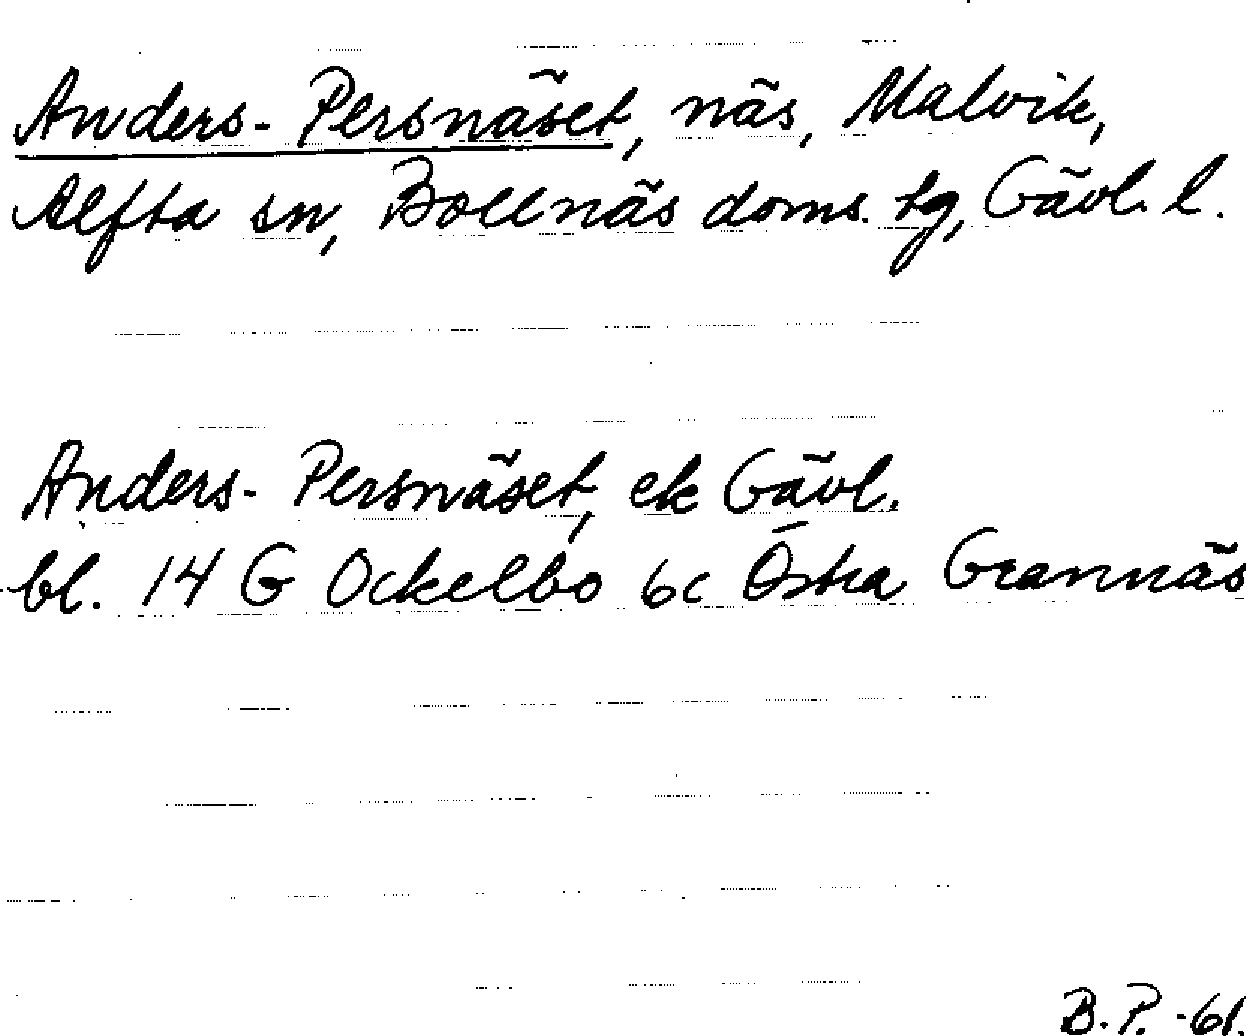 Anders-Persnäset, näs, Malvik,
Alfta sn, Bollnäs doms. tg, Gävl. l.
Anders-Persnäset, ek Gävl.
bl. 14 G Ockelbo 6c Östra Grannäs
B.P. -61.